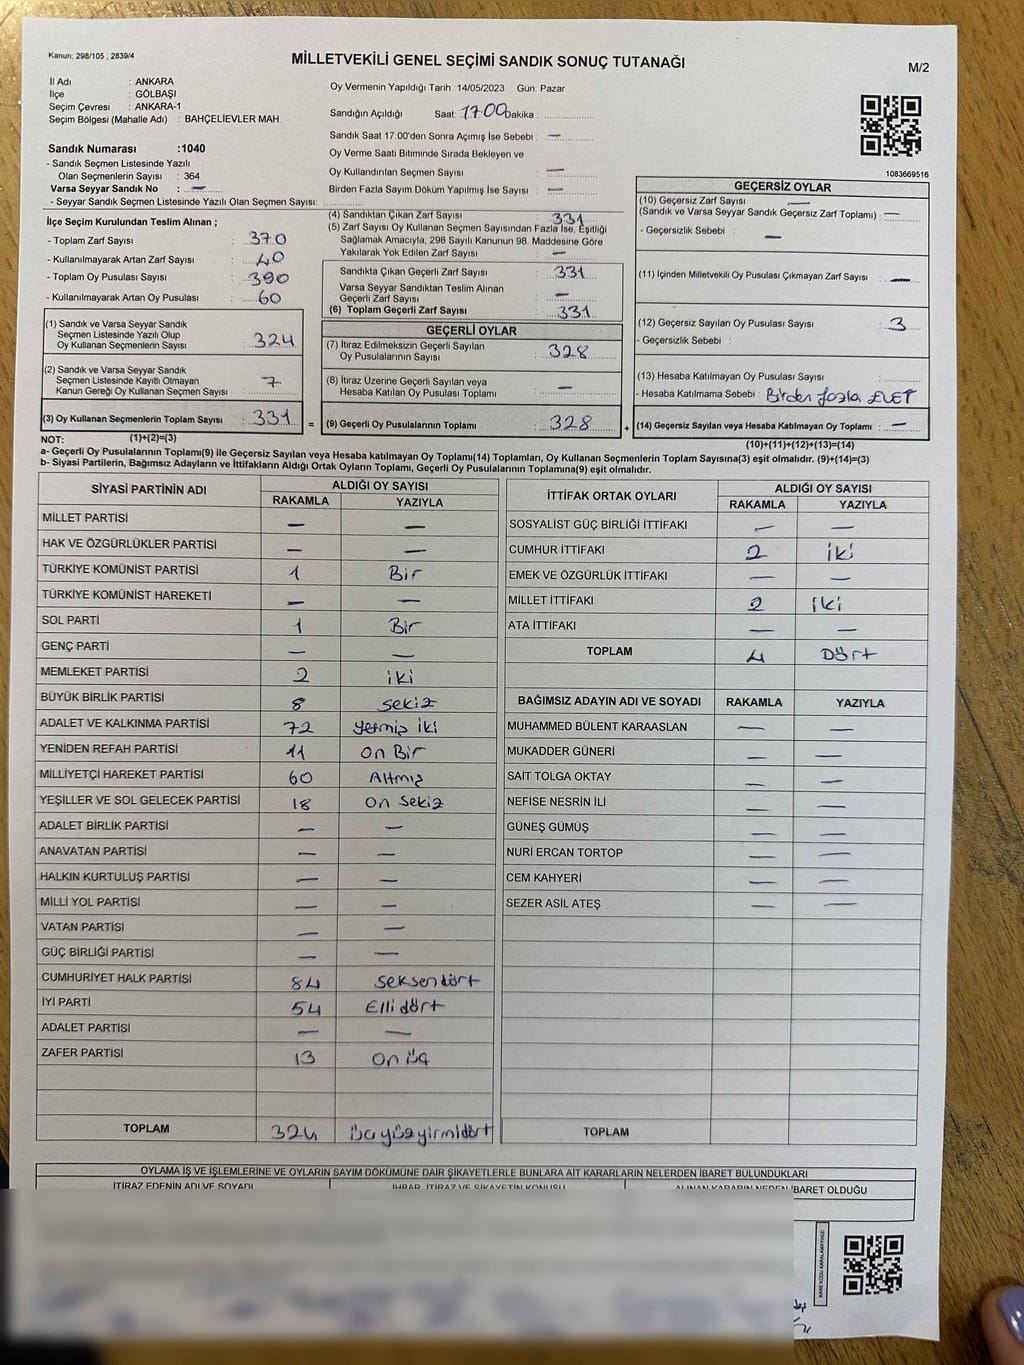 Kanun; 298/105 , 2839/4
MİLLETVEKİLİ GENEL SEÇİMİ SANDIK SONUÇ TUTANAĞI
M/2
İl Adı : ANKARA
İlçe : GÖLBAŞI
Seçim Çevresi : ANKARA-1
Seçim Bölgesi (Mahalle Adı) : BAHÇELİEVLER MAH.
Sandık Numarası :1040
- Sandık Seçmen Listesinde Yazılı
Olan Seçmenlerin Sayısı : 364
Varsa Seyyar Sandık No : —
- Seyyar Sandık Seçmen Listesinde Yazılı Olan Seçmen Sayısı:
Oy Vermenin Yapıldığı Tarih :14/05/2023 Gün: Pazar
Sandığın Açıldığı Saat 17.00 Dakika
Sandık Saat 17.00'den Sonra Açımış İse Sebebi : —
Oy Verme Saati Bitiminde Sırada Bekleyen ve
Oy Kullandırılan Seçmen Sayısı : —
Birden Fazla Sayım Döküm Yapılmış İse Sayısı : —
1083669516
İlçe Seçim Kurulundan Teslim Alınan ;
- Toplam Zarf Sayısı : 370
- Kullanılmayarak Artan Zarf Sayısı : 40
- Toplam Oy Pusulası Sayısı : 390
- Kullanılmayarak Artan Oy Pusulası : 60
(1) Sandık ve Varsa Seyyar Sandık
Seçmen Listesinde Yazılı Olup
Oy Kullanan Seçmenlerin Sayısı : 324
(2) Sandık ve Varsa Seyyar Sandık
Seçmen Listesinde Kayıtlı Olmayan
Kanun Gereği Oy Kullanan Seçmen Sayısı : 7
(3) Oy Kullanan Seçmenlerin Toplam Sayısı : 331 =
(4) Sandıktan Çıkan Zarf Sayısı : 331
(5) Zarf Sayısı Oy Kullanan Seçmen Sayısından Fazla İse, Eşitliği
Sağlamak Amacıyla, 298 Sayılı Kanunun 98. Maddesine Göre
Yakılarak Yok Edilen Zarf Sayısı : —
Sandıkta Çıkan Geçerli Zarf Sayısı : 331
Varsa Seyyar Sandıktan Teslim Alınan
Geçerli Zarf Sayısı : —
(6) Toplam Geçerli Zarf Sayısı : 331
GEÇERLİ OYLAR
(7) İtiraz Edilmeksizin Geçerli Sayılan
Oy Pusulalarının Sayısı : 328
(8) İtiraz Üzerine Geçerli Sayılan veya
Hesaba Katılan Oy Pusulalarının Sayısı : —
(9) Geçerli Oy Pusulalarının Toplamı : 328 +
GEÇERSİZ OYLAR
(10) Geçersiz Zarf Sayısı —
(Sandık ve Varsa Seyyar Sandık Geçersiz Zarf Toplamı) : —
- Geçersizlik Sebebi : —
(11) İçinden Milletvekili Oy Pusulası Çıkmayan Zarf Sayısı : —
(12) Geçersiz Sayılan Oy Pusulası Sayısı : 3
- Geçersizlik Sebebi :
(13) Hesaba Katılmayan Oy Pusulası Sayısı :
- Hesaba Katılmama Sebebi : Birden fazla EVET
(14) Geçersiz Sayılan veya Hesaba Katılmayan Oy Toplamı : —
NOT: (1)+(2)=(3) (10)+(11)+(12)+(13)=(14)
a- Geçerli Oy Pusulalarının Toplamı(9) ile Geçersiz Sayılan veya Hesaba katılmayan Oy Toplamı(14) Toplamları, Oy Kullanan Seçmenlerin Toplam Sayısına(3) eşit olmalıdır. (9)+(14)=(3)
b- Siyasi Partilerin, Bağımsız Adayların ve İttifakların Aldığı Ortak Oyların Toplamı, Geçerli Oy Pusulalarının Toplamına(9) eşit olmalıdır.
SİYASİ PARTİNİN ADI ALDIĞI OY SAYISI
RAKAMLA YAZIYLA
MİLLET PARTİSİ — —
HAK VE ÖZGÜRLÜKLER PARTİSİ — —
TÜRKİYE KOMÜNİST PARTİSİ 1 Bir
TÜRKİYE KOMÜNİST HAREKETİ — —
SOL PARTİ 1 Bir
GENÇ PARTİ — —
MEMLEKET PARTİSİ 2 iki
BÜYÜK BİRLİK PARTİSİ 8 sekiz
ADALET VE KALKINMA PARTİSİ 72 yetmiş iki
YENİDEN REFAH PARTİSİ 11 on Bir
MİLLİYETÇİ HAREKET PARTİSİ 60 Altmış
YEŞİLLER VE SOL GELECEK PARTİSİ 18 on sekiz
ADALET BİRLİK PARTİSİ — —
ANAVATAN PARTİSİ — —
HALKIN KURTULUŞ PARTİSİ — —
MİLLİ YOL PARTİSİ — —
VATAN PARTİSİ — —
GÜÇ BİRLİĞİ PARTİSİ — —
CUMHURİYET HALK PARTİSİ 84 seksendört
İYİ PARTİ 54 Elli dört
ADALET PARTİSİ — —
ZAFER PARTİSİ 13 on üç
TOPLAM 324 üçyüzyirmidört
İTTİFAK ORTAK OYLARI ALDIĞI OY SAYISI
RAKAMLA YAZIYLA
SOSYALİST GÜÇ BİRLİĞİ İTTİFAKI — —
CUMHUR İTTİFAKI 2 iki
EMEK VE ÖZGÜRLÜK İTTİFAKI — —
MİLLET İTTİFAKI 2 iki
ATA İTTİFAKI — —
TOPLAM 4 Dört
BAĞIMSIZ ADAYIN ADI VE SOYADI RAKAMLA YAZIYLA
MUHAMMED BÜLENT KARAASLAN — —
MUKADDER GÜNERİ — —
SAİT TOLGA OKTAY — —
NEFİSE NESRİN İLİ — —
GÜNEŞ GÜMÜŞ — —
NURİ ERCAN TORTOP — —
CEM KAHYERİ — —
SEZER ASİL ATEŞ — —
TOPLAM
OYLAMA İŞ VE İŞLEMLERİNE VE OYLARIN SAYIM DÖKÜMÜNE DAİR ŞİKAYETLERLE BUNLARA AİT KARARLARIN NELERDEN İBARET BULUNDUKLARI
İTİRAZ EDENİN ADI VE SOYADI İHBAR, İTİRAZ VE ŞİKAYETİN KONUSU ALINAN KARARIN NEDEN İBARET OLDUĞU
KARE KODU KARALAMAYINIZ!